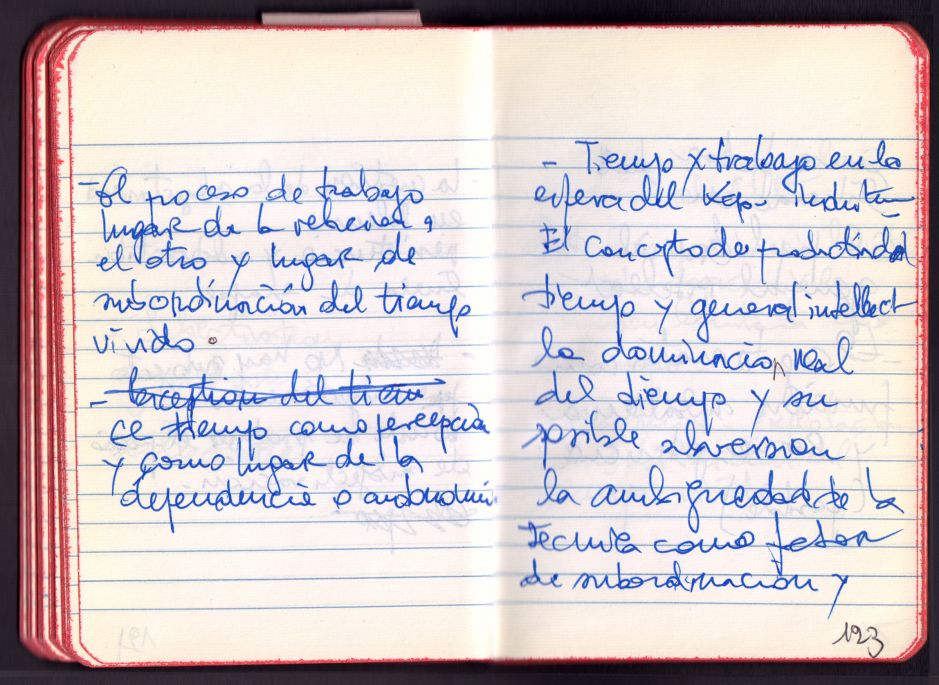 - El proceso de trabajo
lugar de la relación a
el otro y lugar de
subordinación del tiempo
vivido.
- Perceptión del tiem
El tiempo como percepción
y como lugar de la
dependencia o
- Tiempo x trabajo en la
esfera del
El concepto de productividad
tiempo y general intellect
la dominacion real
del tiempo y su
posible subversion
la ambiguedad de la
tecnica como factor
de subordinación y
123